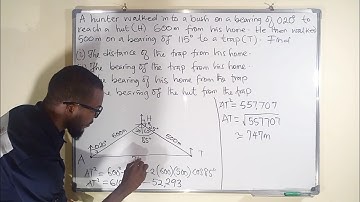 A hunter walked into a bush on a bearing of 020° to
reach a hut (H) 600m from his home. He then walked
500m on a bearing of 115° to a trap (T). Find
The distance of the trap from his home
The bearing of the trap from his home
bearing of his home from the trap
bearing of the hut from the trap
H
600m
500m
85°
020°
A
T
AT² = 600²
2(600)(500) cos 85°
AT² = 610
52,293
AT² = 557,707
AT = √557707
≃ 747m